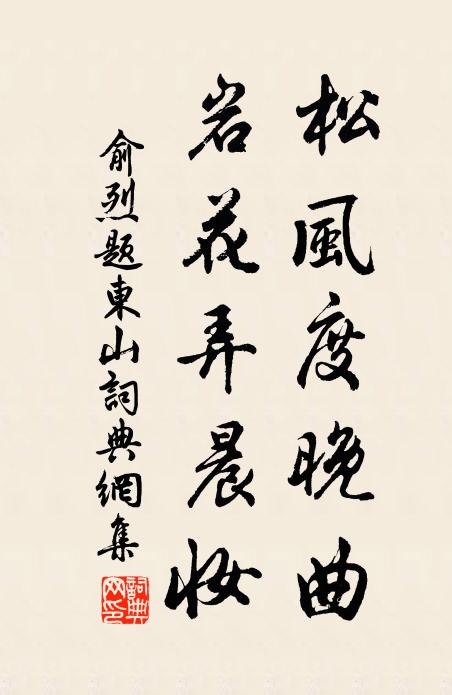 松風度晚曲
岩花弄晨妝
俞烈題東山詞典網集
詞典網印